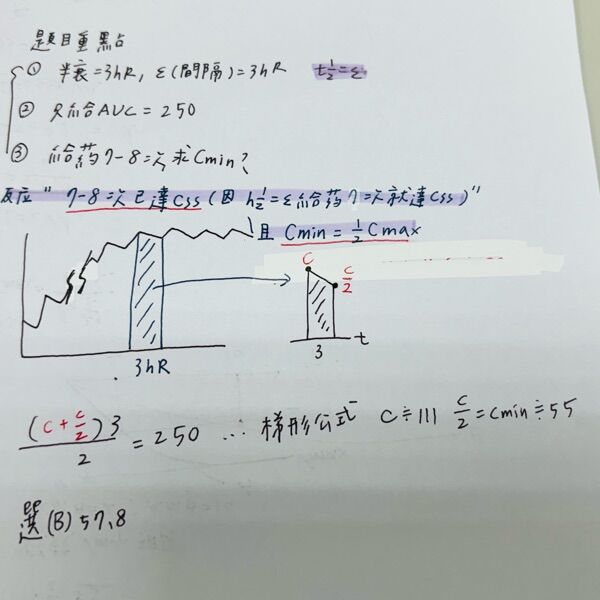 題目重點
① 半衰=3hR, ε(間隔)=3hR t½=ε
② 只給AUC=250
③ 給藥7-8次求Cmin?
反应"7-8次已達Css(因h½=ε給药7次就達Css)"
且 Cmin=½Cmax
C
C/2
3 t
3hR
(C+C/2)3/2=250 ∴ 梯形公式 C≑111 C/2=Cmin≑55
選(B)57.8